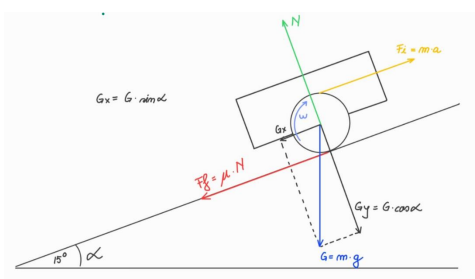 N
Fi = m·a
Gx = G·sinα
ω
Gx
Ff = μ·N
Gy = G·cosα
15° α
G = m·g